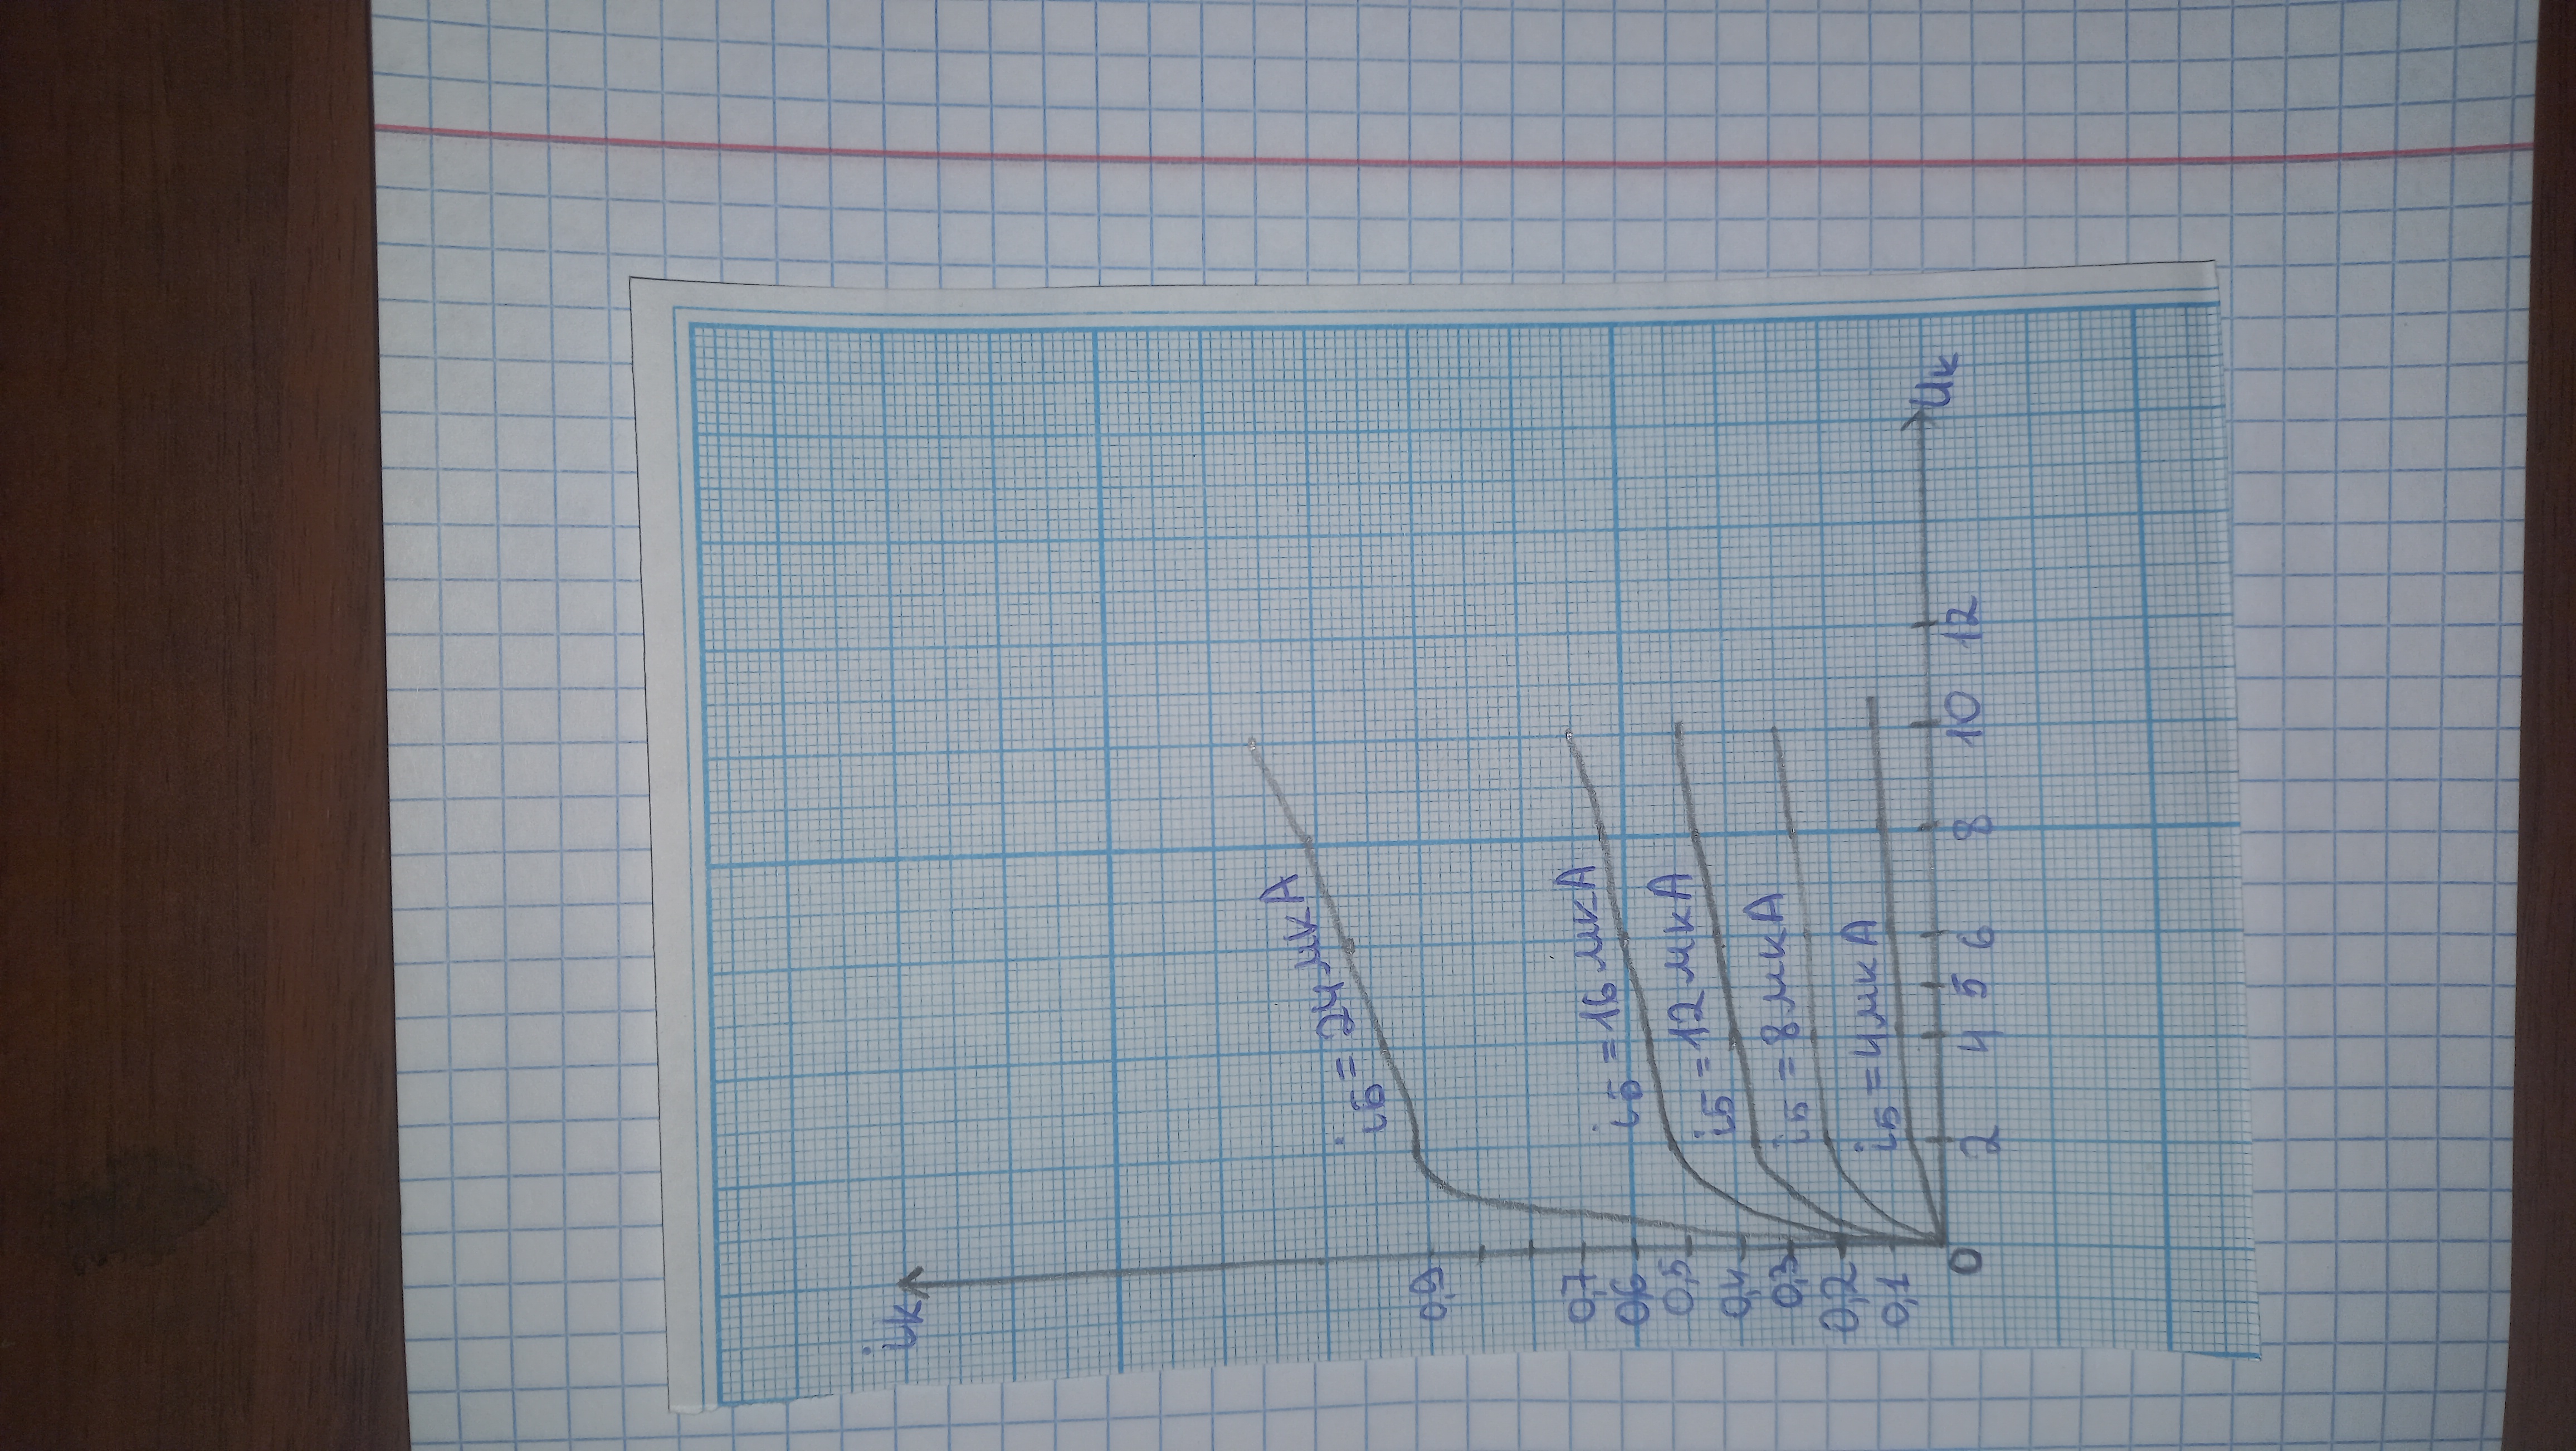 iк
iБ = 24 мкА
0,9
iБ = 16 мкА
0,7
0,6
0,5
iБ = 12 мкА
0,4
0,3
iБ = 8 мкА
0,2
iБ = 4 мкА
0,1
0 2 4 5 6 8 10 12 Uк